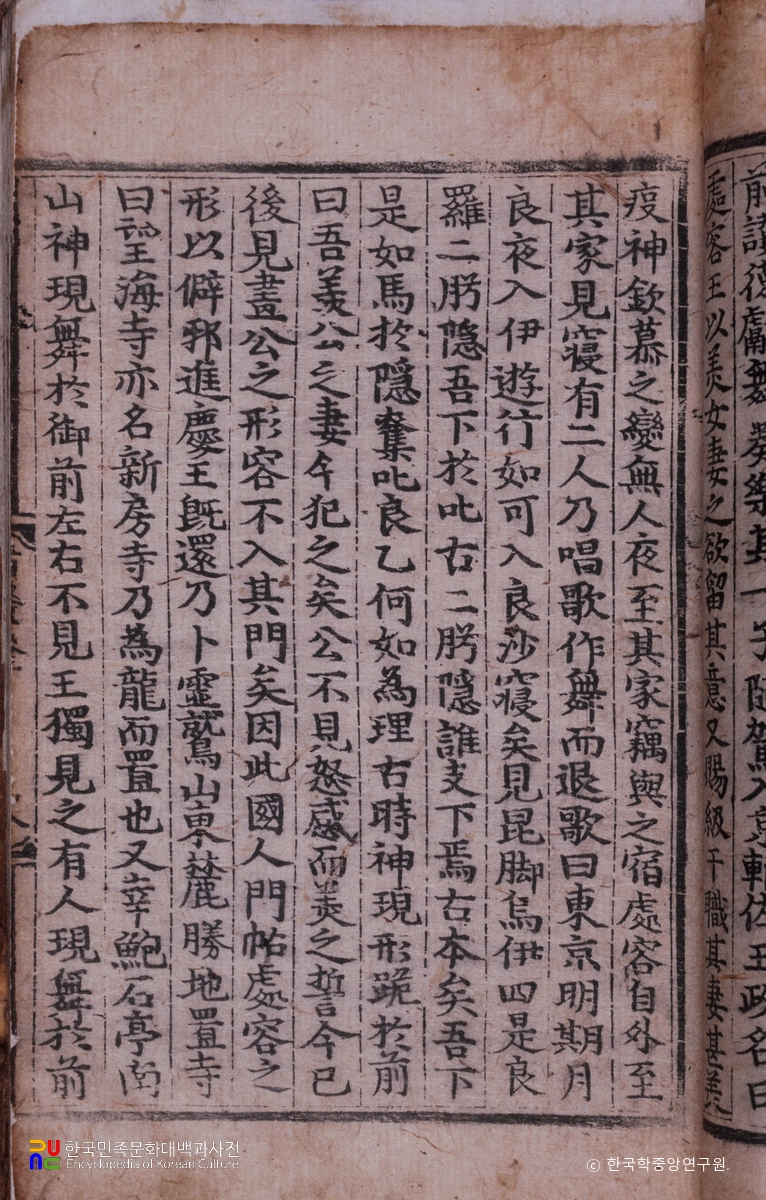 前讃德獻舞奏樂其一子隨駕入京輔佐王政名曰
處容王以美女妻之欲留其意又賜級干職其妻甚美
疫神欽慕之變無人夜至其家竊與之宿處容自外至
其家見寢有二人乃唱歌作舞而退歌曰東京明期月
良夜入伊遊行如可入良沙寢矣見昆脚烏伊四是良
羅二肹隱吾下於叱古二肹隱誰支下焉古本矣吾下
是如馬於隱奪叱良乙何如為理古時神現形跪於前
曰吾羨公之妻今犯之矣公不見怒感而美之誓今已
後見畫公之形容不入其門矣因此國人門帖處容之
形以僻邪進慶王旣還乃卜靈鷲山東麓勝地置寺
曰望海寺亦名新房寺乃為龍而置也又幸鮑石亭南
山神現舞於御前左右不見王獨見之有人現舞於前
한국민족문화대백과사전
Encyclopedia of Korean Culture
© 한국학중앙연구원.